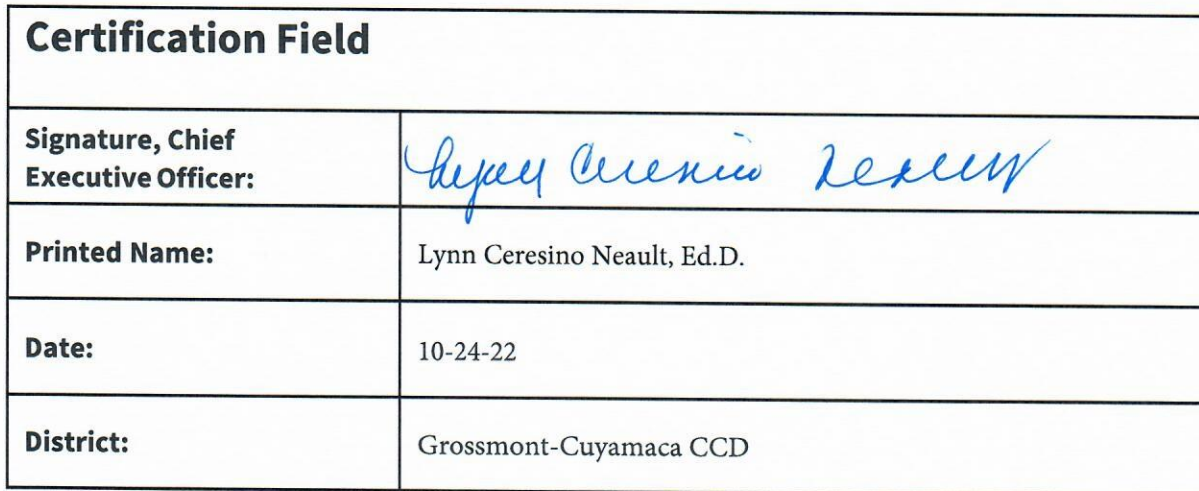 Certification Field
Signature, Chief
Executive Officer:
Lynn Ceresino Neault
Printed Name:
Lynn Ceresino Neault, Ed.D.
Date:
10-24-22
District:
Grossmont-Cuyamaca CCD